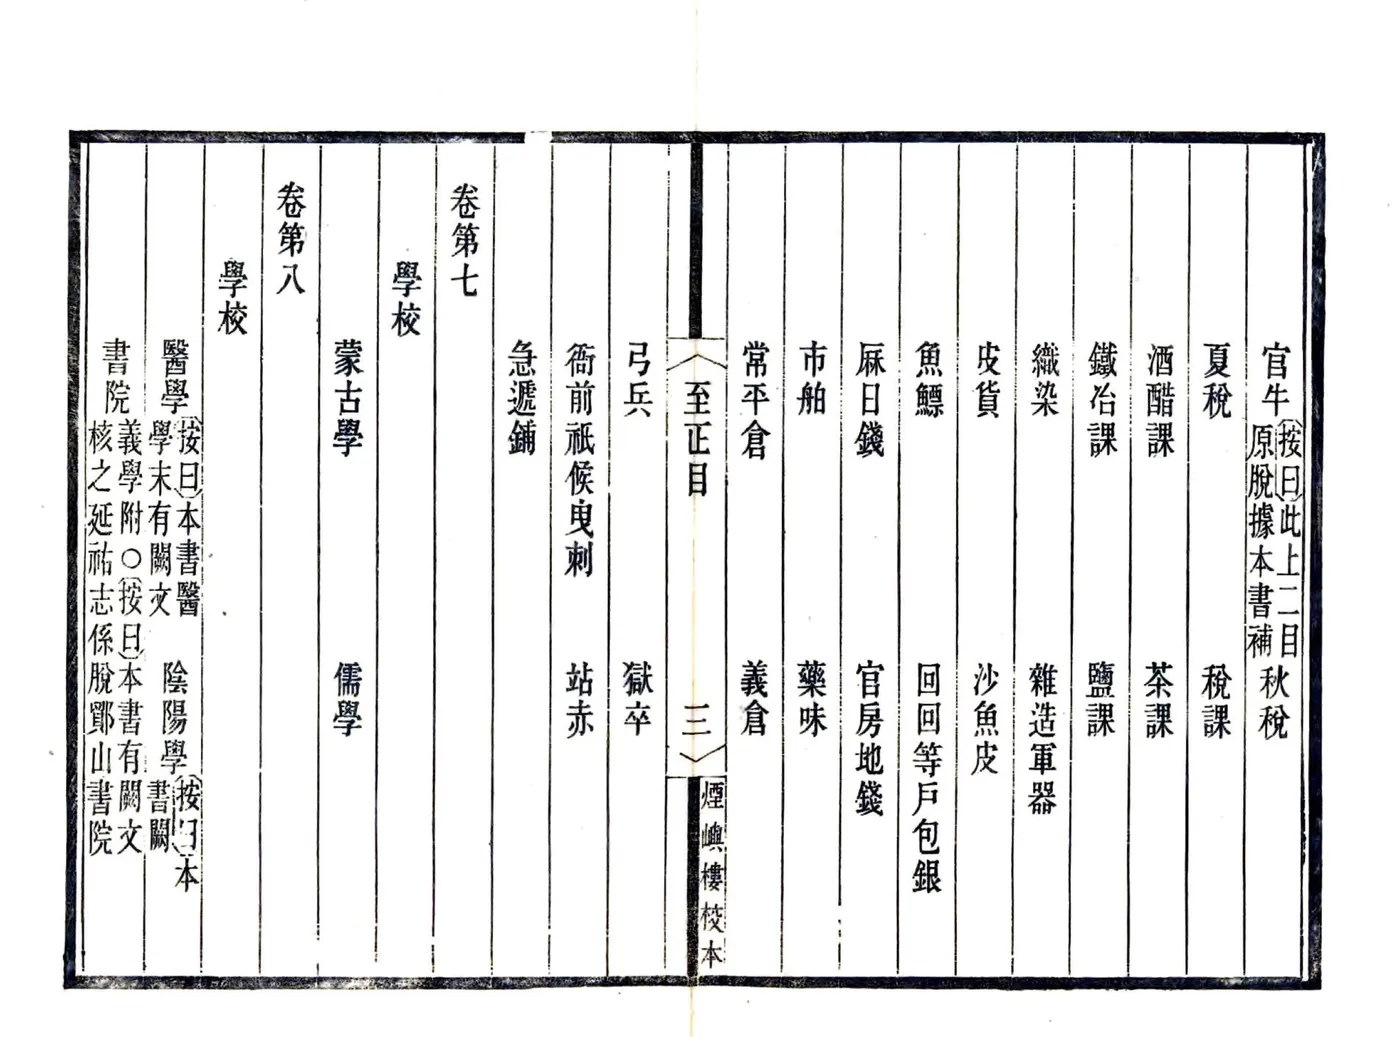 官牛 按曰此上二目原脫據本書補 秋稅
夏稅 稅課
酒醋課 茶課
鐵冶課 鹽課
織染 雜造軍器
皮貨 沙魚皮
魚鰾 回回等戶包銀
厤日錢 官房地錢
市舶 藥味
常平倉 義倉
至正目 三 煙嶼樓校本
弓兵 獄卒
衙前祇候曳剌 站赤
急遞鋪
卷第七
學校
蒙古學 儒學
卷第八
學校
醫學 按曰本書醫學末有闕文 陰陽學 按曰本書闕
書院 義學附○按曰本書有闕文核之延祐志係脫鄮山書院